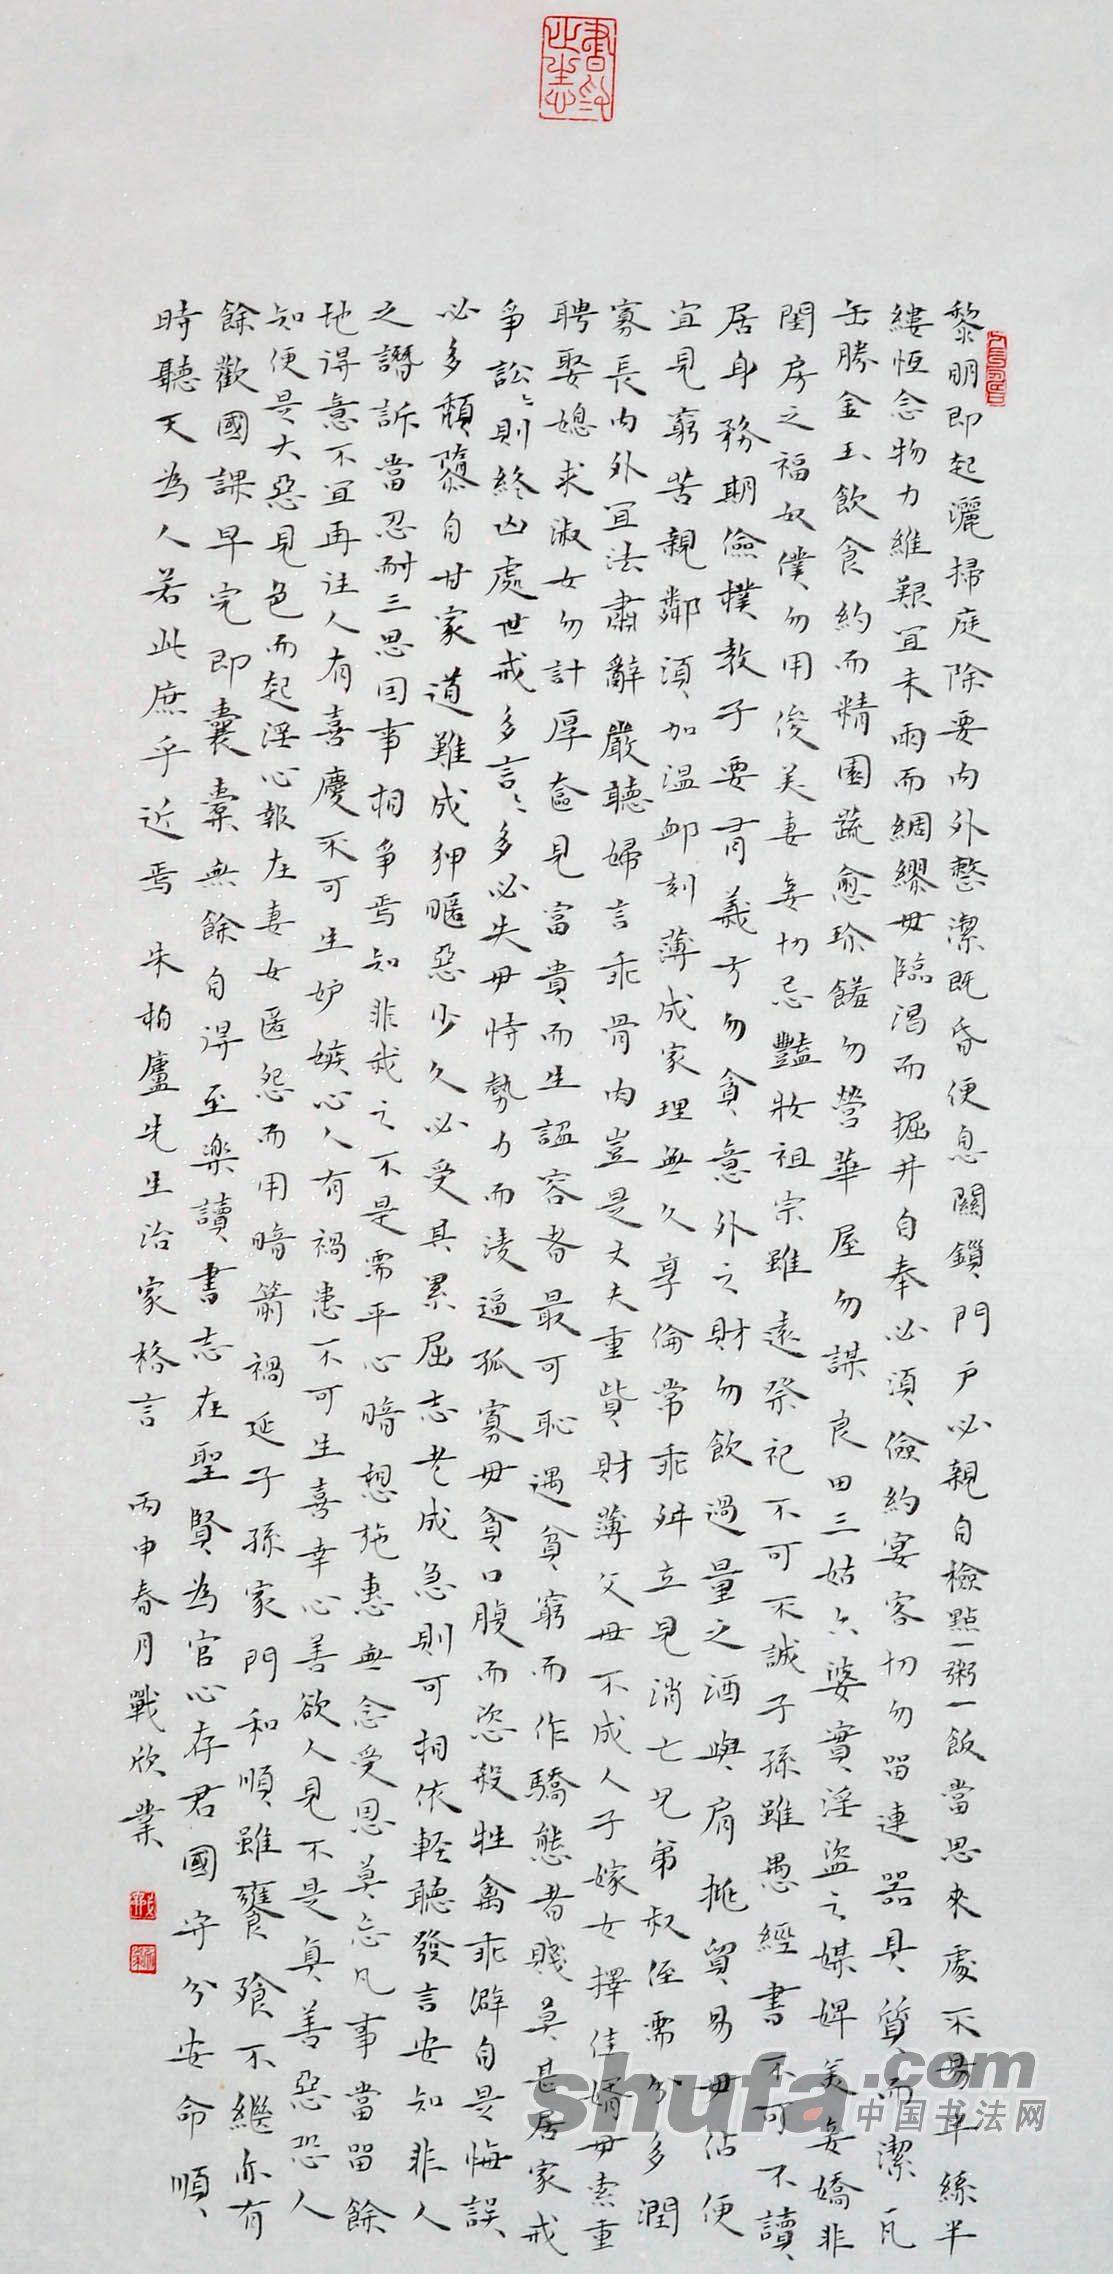 黎明即起灑掃庭除要內外整潔既昏便息關鎖門戶必親自檢點一粥一飯當思來處不易半絲半
縷恆念物力維艱宜未雨而綢繆毋臨渴而掘井自奉必須儉約宴客切勿留連器具質而潔瓦
缶勝金玉飲食約而精園蔬愈珍饈勿營華屋勿謀良田三姑六婆實淫盜之媒婢美妾嬌非
閨房之福奴僕勿用俊美妻妾切忌豔妝祖宗雖遠祭祀不可不誠子孫雖愚經書不可不讀
居身務期儉樸教子要有義方勿貪意外之財勿飲過量之酒與肩挑貿易毋佔便
宜見窮苦親鄰須加溫卹刻薄成家理無久享倫常乖舛立見消亡兄弟叔侄需分多潤
寡長內外宜法肅辭嚴聽婦言乖骨肉豈是丈夫重貲財薄父母不成人子嫁女擇佳婿毋索重
聘娶媳求淑女勿計厚奩見富貴而生諂容者最可恥遇貧窮而作驕態者賤莫甚居家戒
爭訟訟則終凶處世戒多言言多必失毋恃勢力而淩逼孤寡毋貪口腹而恣殺牲禽乖僻自是悔誤
必多頹隳自甘家道難成狎暱惡少久必受其累屈志老成急則可相依輕聽發言安知非人
之譖訴當忍耐三思因事相爭焉知非我之不是需平心暗想施惠無念受恩莫忘凡事當留餘
地得意不宜再往人有喜慶不可生妒嫉心人有禍患不可生喜幸心善欲人見不是真善惡恐人
知便是大惡見色而起淫心報在妻女匿怨而用暗箭禍延子孫家門和順雖饔飧不繼亦有
餘歡國課早完即囊橐無餘自得至樂讀書志在聖賢為官心存君國守分安命順
時聽天為人若此庶乎近焉 朱柏廬先生治家格言 丙申春月戰欣業
shufa.com
中国书法网